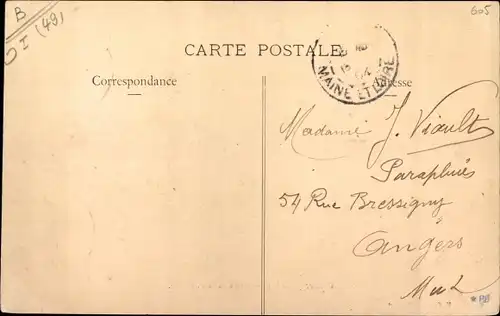 B
I (49)
605
CARTE POSTALE
Correspondance
Adresse
MAINE ET LOIRE
Madame J. Viault
Parapluies
54 Rue Bressigny
Angers
M et L